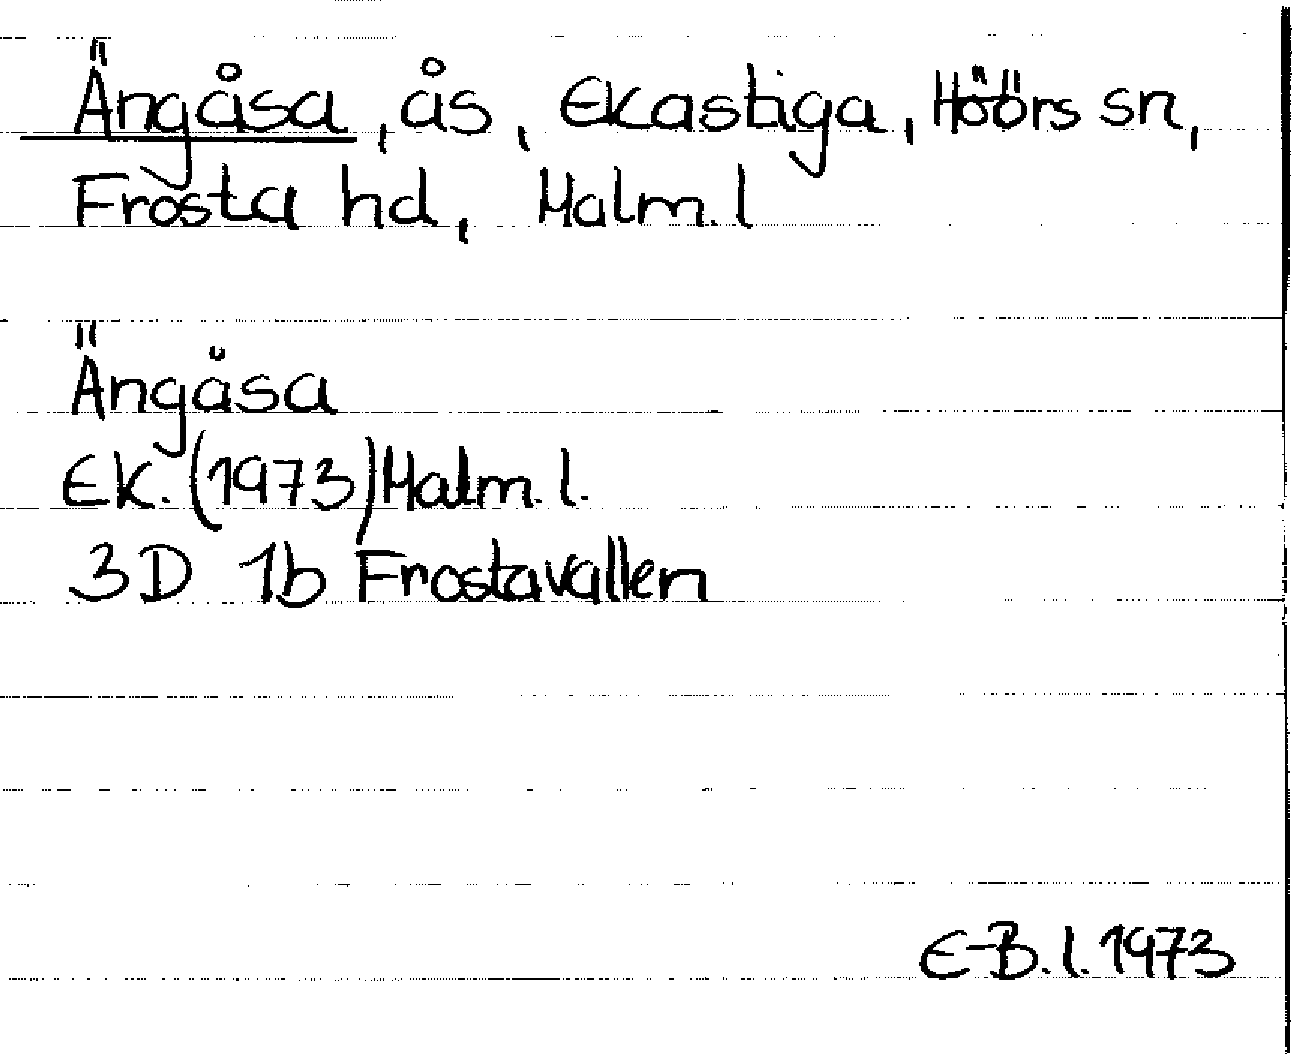 Ängåsa, ås, Ekastiga, Höörs sn,
Frosta hd, Malm. l
Ängåsa
Ek. (1973) Malm. l.
3D 1b Frostavallen
E-B. l. 1973